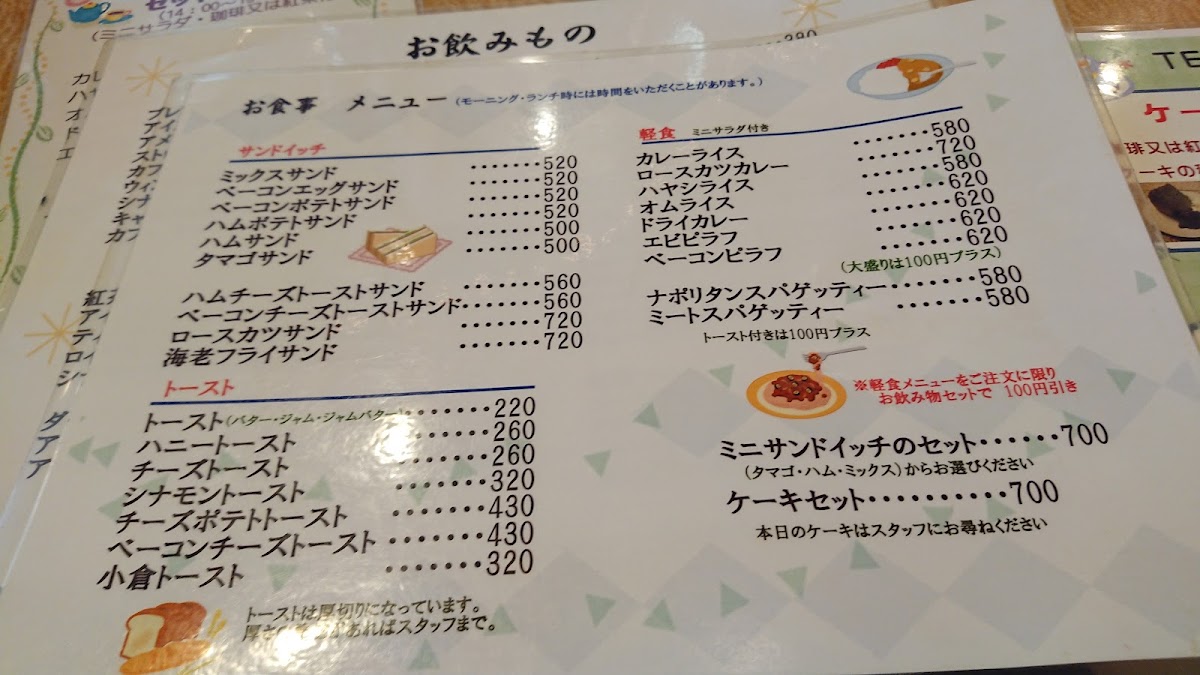 (14:00~
(ミニサラダ・珈琲又は紅茶
お飲みもの
お食事 メニュー(モーニング・ランチ時には時間をいただくことがあります。)
サンドイッチ
ミックスサンド ・・・・・・・520
ベーコンエッグサンド ・・・・・・・520
ベーコンポテトサンド ・・・・・・・520
ハムポテトサンド ・・・・・・・520
ハムサンド ・・・・・・・500
タマゴサンド ・・・・・・・500
ハムチーズトーストサンド ・・・・・・・560
ベーコンチーズトーストサンド・・・・・・・560
ロースカツサンド ・・・・・・・720
海老フライサンド ・・・・・・・720
トースト
トースト(バター・ジャム・ジャムバター)・・・・・・・220
ハニートースト ・・・・・・・260
チーズトースト ・・・・・・・260
シナモントースト ・・・・・・・320
チーズポテトトースト ・・・・・・・430
ベーコンチーズトースト ・・・・・・・430
小倉トースト ・・・・・・・320
トーストは厚切りになっています。
あればスタッフまで。
軽食 ミニサラダ付き
カレーライス ・・・・・・・580
ロースカツカレー ・・・・・・・720
ハヤシライス ・・・・・・・580
オムライス ・・・・・・・620
ドライカレー ・・・・・・・620
エビピラフ ・・・・・・・620
ベーコンピラフ ・・・・・・・620
(大盛りは100円プラス)
ナポリタンスパゲッティー・・・・・・・580
ミートスパゲッティー ・・・・・・・580
トースト付きは100円プラス
※軽食メニューをご注文に限り
お飲み物セットで 100円引き
ミニサンドイッチのセット・・・・・・700
(タマゴ・ハム・ミックス)からお選びください
ケーキセット・・・・・・・・・・・700
本日のケーキはスタッフにお尋ねください
TE
ケー
琲又は紅
ーキの